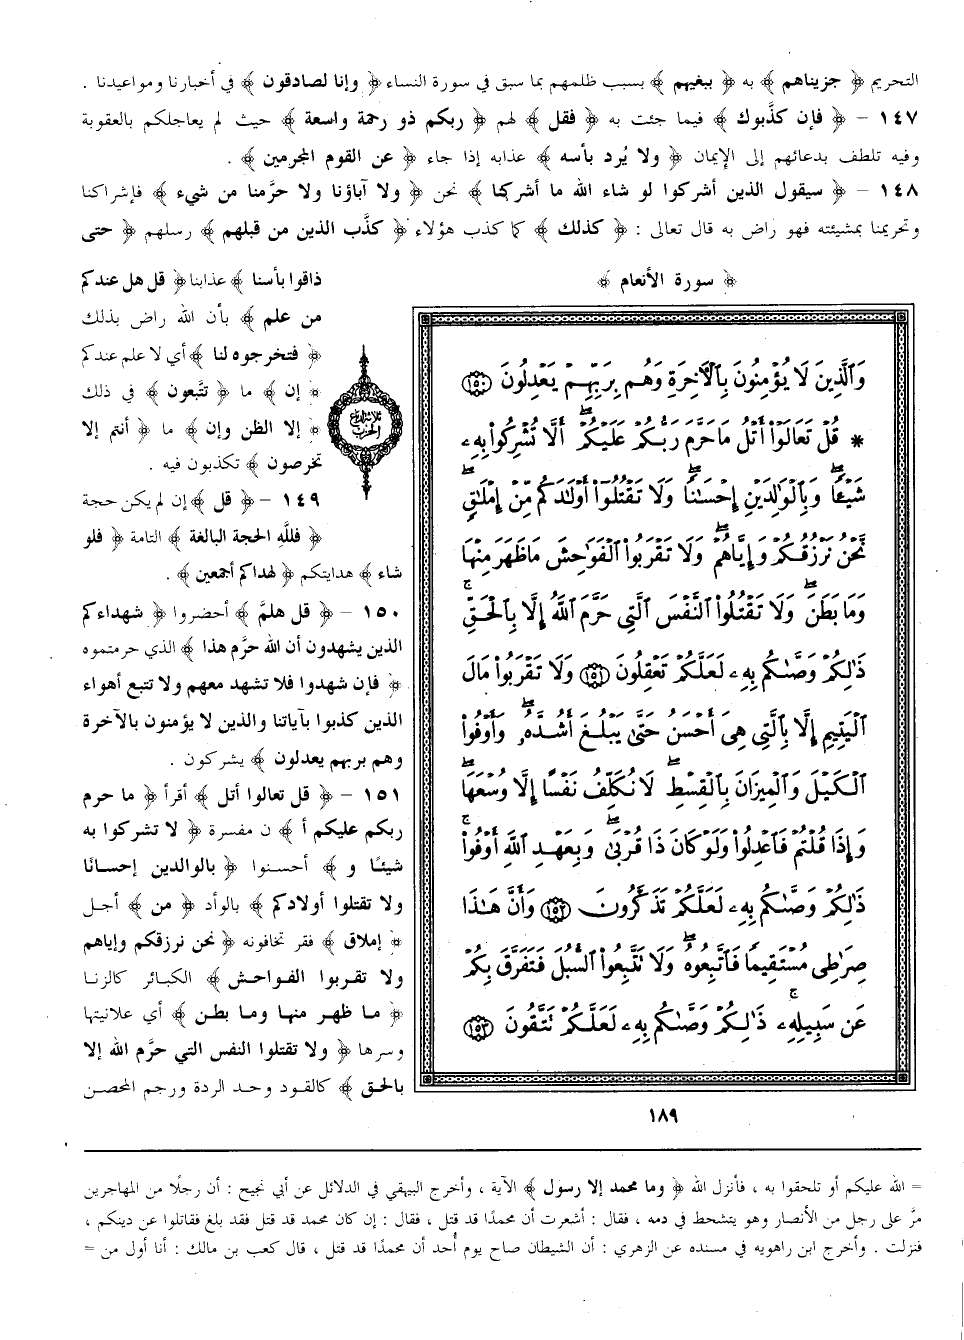 التحريم ﴿ جزيناهم ﴾ به ﴿ ببغيهم ﴾ بسبب ظلمهم بما سبق في سورة النساء ﴿ وإنا لصادقون ﴾ في أخبارنا ومواعيدنا .
١٤٧ – ﴿ فإن كذَّبوك ﴾ فيما جئت به ﴿ فقل ﴾ لهم ﴿ ربكم ذو رحمة واسعة ﴾ حيث لم يعاجلكم بالعقوبة
وفيه تلطف بدعائهم إلى الإيمان ﴿ ولا يُرد بأسه ﴾ عذابه إذا جاء ﴿ عن القوم المجرمين ﴾ .
١٤٨ – ﴿ سيقول الذين أشركوا لو شاء الله ما أشركنا ﴾ نحن ﴿ ولا آباؤنا ولا حرَّمنا من شيء ﴾ فإشراكنا
وتحريمنا بمشيئته فهو راض به قال تعالى : ﴿ كذلك ﴾ كما كذب هؤلاء ﴿ كذَّب الذين من قبلهم ﴾ رسلهم ﴿ حتى
ذاقوا بأسنا ﴾ عذابنا ﴿ قل هل عندكم
من علم ﴾ بأن الله راض بذلك
﴿ فتخرجوه لنا ﴾ أي لا علم عندكم
﴿ إن ﴾ ما ﴿ تتَّبعون ﴾ في ذلك
﴿ إلا الظن وإن ﴾ ما ﴿ أنتم إلا
تخرصون ﴾ تكذبون فيه .
١٤٩ – ﴿ قل ﴾ إن لم يكن حجة
﴿ فللَّه الحجة البالغة ﴾ التامة ﴿ فلو
شاء ﴾ هدايتكم ﴿ لهداكم أجمعين ﴾ .
١٥٠ – ﴿ قل هلمَّ ﴾ أحضروا ﴿ شهداءكم
الذين يشهدون أن الله حرَّم هذا ﴾ الذي حرمتموه
﴿ فإن شهدوا فلا تشهد معهم ولا تتبع أهواء
الذين كذبوا بآياتنا والذين لا يؤمنون بالآخرة
وهم بربهم يعدلون ﴾ يشركون .
١٥١ – ﴿ قل تعالوا أتل ﴾ أقرأ ﴿ ما حرم
ربكم عليكم أ ﴾ ن مفسرة ﴿ لا تشركوا به
شيئًا و ﴾ أحسنوا ﴿ بالوالدين إحسانًا
ولا تقتلوا أولادكم ﴾ بالوأد ﴿ من ﴾ أجل
﴿ إملاق ﴾ فقر تخافونه ﴿ نحن نرزقكم وإياهم
ولا تقربوا الفواحش ﴾ الكبائر كالزنا
﴿ ما ظهر منها وما بطن ﴾ أي علانيتها
وسرها ﴿ ولا تقتلوا النفس التي حرَّم الله إلا
بالحق ﴾ كالقود وحد الردة ورجم المحصن
﴿ سورة الأنعام ﴾
ثلاثة أرباع
الحزب
وَالَّذِينَ لَا يُؤْمِنُونَ بِالْآخِرَةِ وَهُم بِرَبِّهِمْ يَعْدِلُونَ ١٥٠
* قُلْ تَعَالَوْا أَتْلُ مَا حَرَّمَ رَبُّكُمْ عَلَيْكُمْ أَلَّا تُشْرِكُوا بِهِ
شَيْئًا وَبِالْوَالِدَيْنِ إِحْسَانًا وَلَا تَقْتُلُوا أَوْلَادَكُم مِّنْ إِمْلَاقٍ
نَّحْنُ نَرْزُقُكُمْ وَإِيَّاهُمْ وَلَا تَقْرَبُوا الْفَوَاحِشَ مَا ظَهَرَ مِنْهَا
وَمَا بَطَنَ وَلَا تَقْتُلُوا النَّفْسَ الَّتِي حَرَّمَ اللَّهُ إِلَّا بِالْحَقِّ
ذَٰلِكُمْ وَصَّاكُم بِهِ لَعَلَّكُمْ تَعْقِلُونَ ١٥١ وَلَا تَقْرَبُوا مَالَ
الْيَتِيمِ إِلَّا بِالَّتِي هِيَ أَحْسَنُ حَتَّىٰ يَبْلُغَ أَشُدَّهُ وَأَوْفُوا
الْكَيْلَ وَالْمِيزَانَ بِالْقِسْطِ لَا نُكَلِّفُ نَفْسًا إِلَّا وُسْعَهَا
وَإِذَا قُلْتُمْ فَاعْدِلُوا وَلَوْ كَانَ ذَا قُرْبَىٰ وَبِعَهْدِ اللَّهِ أَوْفُوا
ذَٰلِكُمْ وَصَّاكُم بِهِ لَعَلَّكُمْ تَذَكَّرُونَ ١٥٢ وَأَنَّ هَٰذَا
صِرَاطِي مُسْتَقِيمًا فَاتَّبِعُوهُ وَلَا تَتَّبِعُوا السُّبُلَ فَتَفَرَّقَ بِكُمْ
عَن سَبِيلِهِ ذَٰلِكُمْ وَصَّاكُم بِهِ لَعَلَّكُمْ تَتَّقُونَ ١٥٣
١٨٩
= الله عليكم أو تلحقوا به ، فأنزل الله ﴿ وما محمد إلا رسول ﴾ الآية ، وأخرج البيهقي في الدلائل عن أبي نجيح : أن رجلًا من المهاجرين
مرَّ على رجل من الأنصار وهو يتشحط في دمه ، فقال : أشعرت أن محمدًا قد قتل ، فقال : إن كان محمد قد قتل فقد بلغ فقاتلوا عن دينكم ،
فنزلت . وأخرج ابن راهويه في مسنده عن الزهري : أن الشيطان صاح يوم أُحد أن محمدًا قد قتل ، قال كعب بن مالك : أنا أول من =